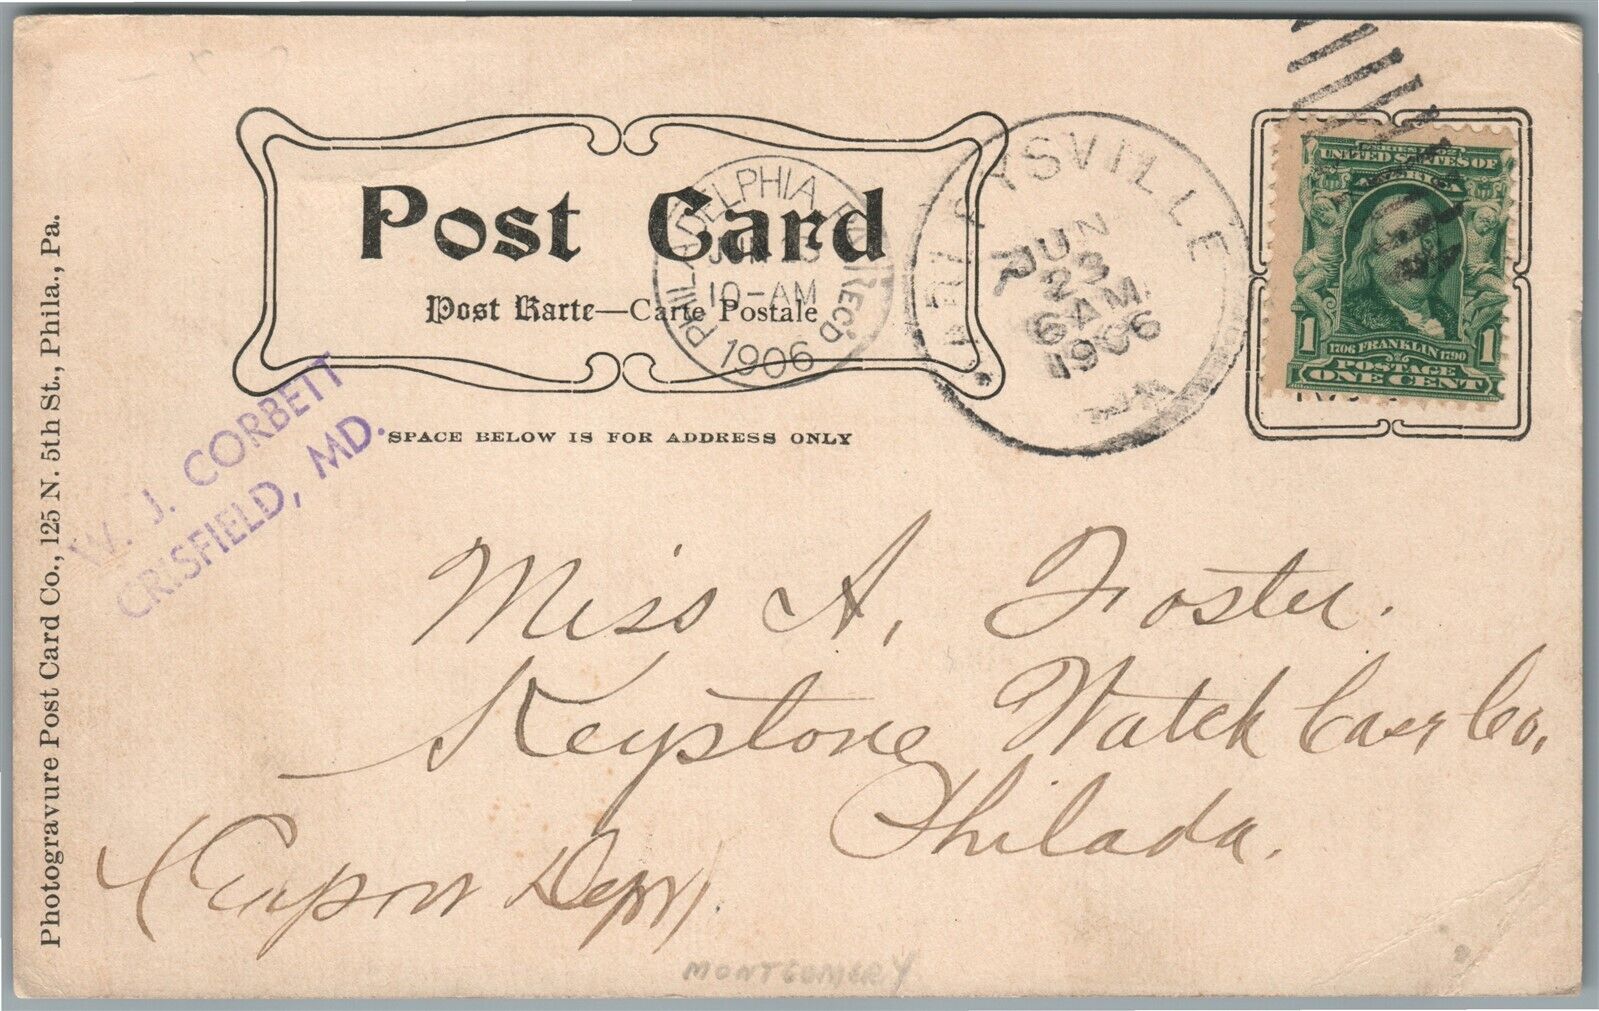 Post Card
Post Karte—Carte Postale
SPACE BELOW IS FOR ADDRESS ONLY
PHILADELPHIA, PA. REC'D
JUN 23
10-AM
1906
YSVILLE
JUN
23
6 AM
1906
SERIES 1902
UNITED STATES OF
AMERICA
1 1706 FRANKLIN 1790 1
POSTAGE
ONE CENT
W. J. CORBETT
CRISFIELD, MD.
Photogravure Post Card Co., 125 N. 5th St., Phila., Pa.
Miss A. Foster.
Keystone Watch Case Co,
Philada.
(Export Dept)
MONTGOMERY